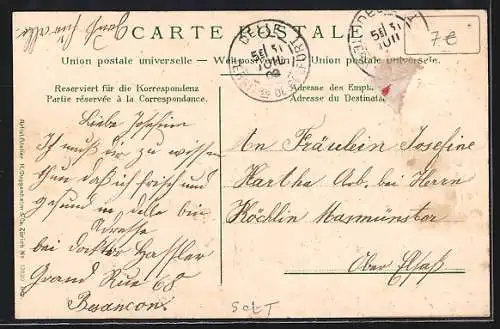 CARTE POSTALE
Union postale universelle — Weltpostverein — Unione postale universale.
Reserviert für die Korrespondenz
Partie réservée à la Correspondance.
Adresse des
Adresse du
DELLE
7€
Liebe Josefine
muß ir zu wissen
daß ich frisch und
gesund in Delle bin
Adresse
bei Doktor Hassler
Grand Rue 68
Besancon
An Fräulein Josefine
bei Herrn
Köchlin Masmünster
Ober Elsaß
SOLT